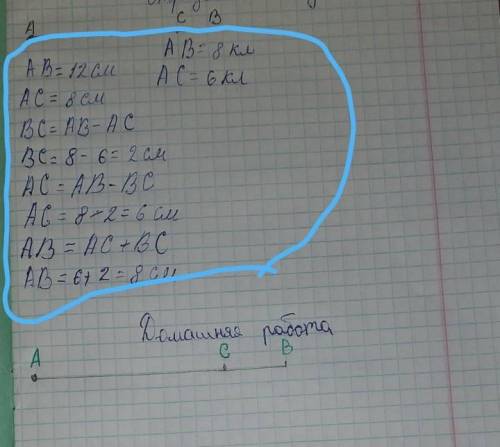 A C B
AB = 12 см AB = 8 кл
AC = 8 см AC = 6 кл
BC = AB - AC
BC = 8 - 6 = 2 см
AC = AB - BC
AC = 8 - 2 = 6 см
AB = AC + BC
AB = 6 + 2 = 8 см
Домашняя работа
A C B